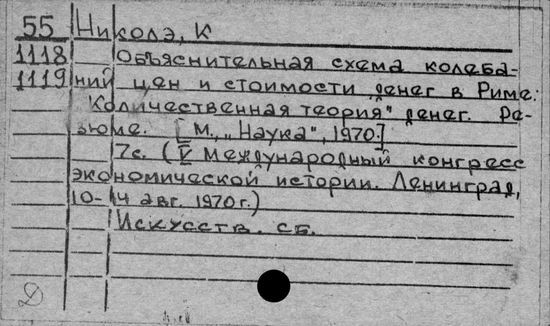 55 Николэ, К
1118 Объяснительная схема колеба-
1119 ний цен и стоимости денег в Риме:
"Количественная теория" денег. Ре-
зюме. [М., "Наука", 1970.]
7с. (V международный конгресс
экономической истории. Ленинград,
10-14 авг. 1970г.)
Искусств. сб.
Д